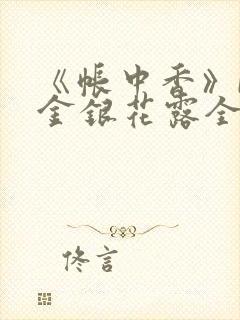 《帐中香》
金银花露全
佟言